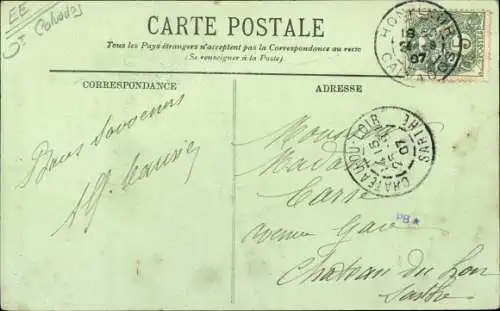 EE
Calvados
CARTE POSTALE
Tous les Pays étrangers n'acceptent pas la Correspondance au recto
(Se renseigner à la Poste)
CORRESPONDANCE
ADRESSE
HONFLEUR
CALVADOS
07
CHATEAU-DU-LOIR
SARTHE
07
Bons Souvenirs
Monsieur
Madame
avenue Gare
Chateau du Loir
Sarthe
PB